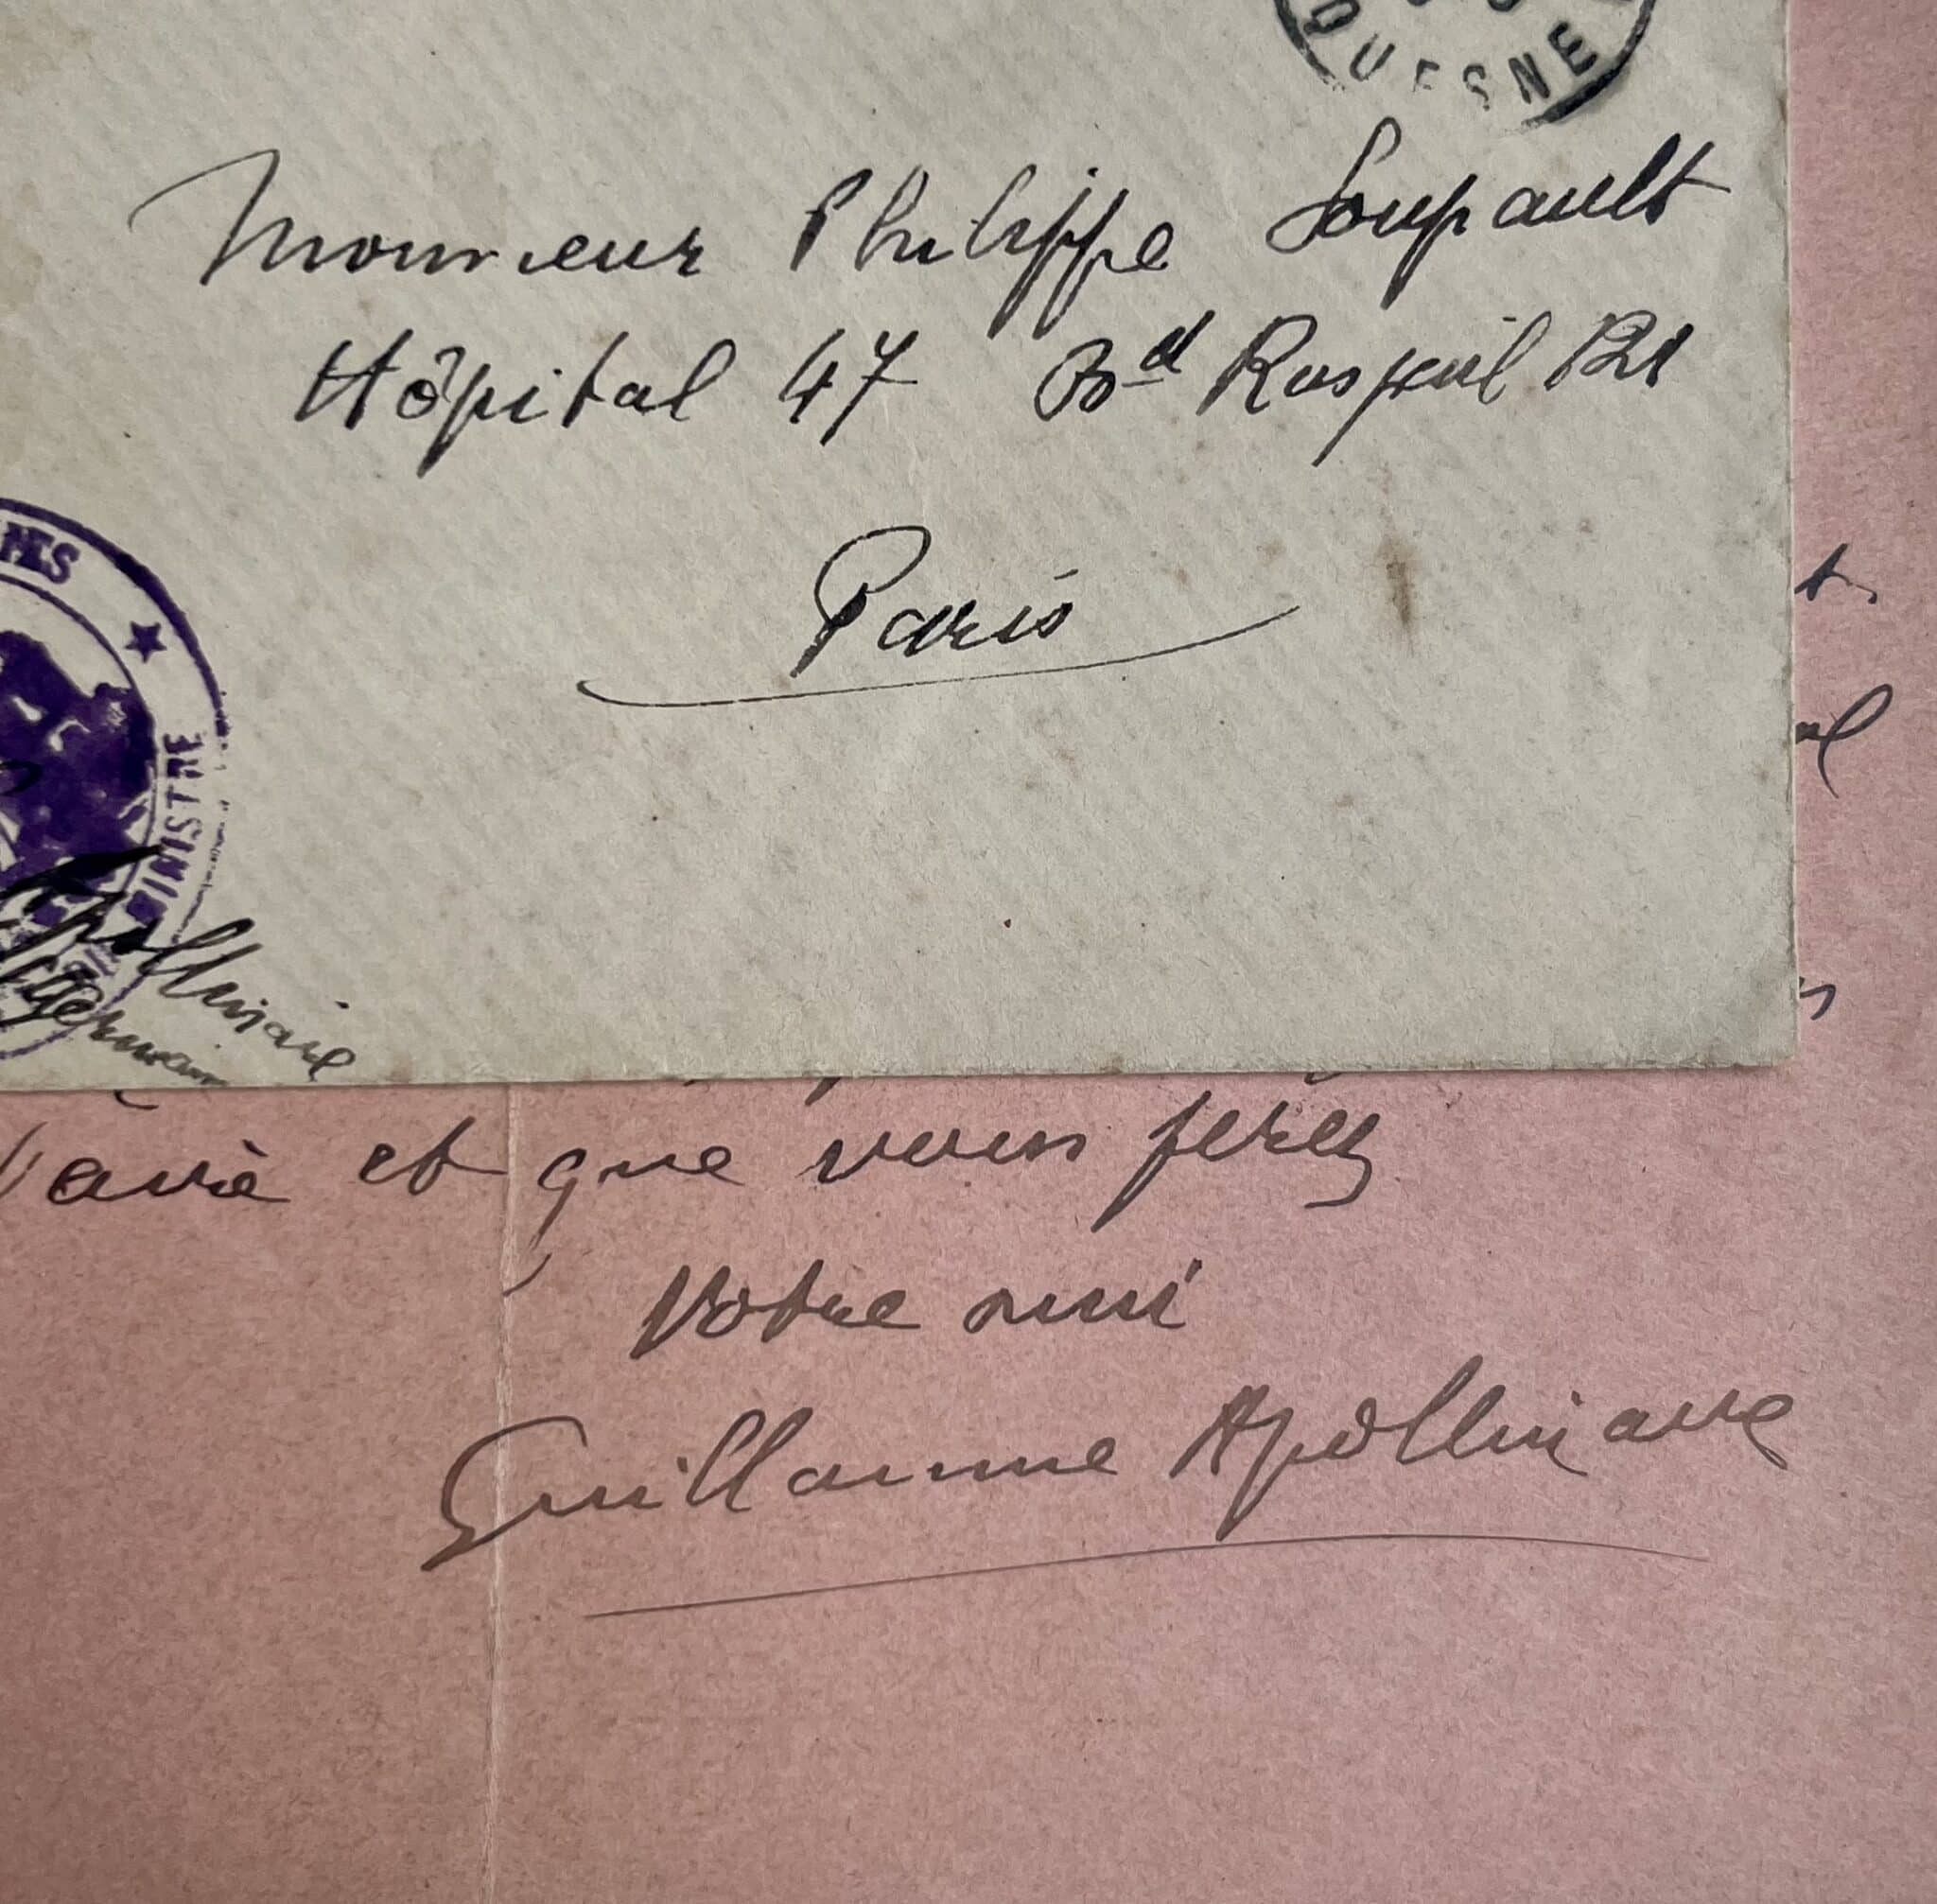 DUESNE
Monsieur Philippe Soupault
Hôpital 47 Bd Raspail 121
Paris
MES
MINISTRE
Apollinaire
Germain
et que vous ferez
Votre ami
Guillaume Apollinaire